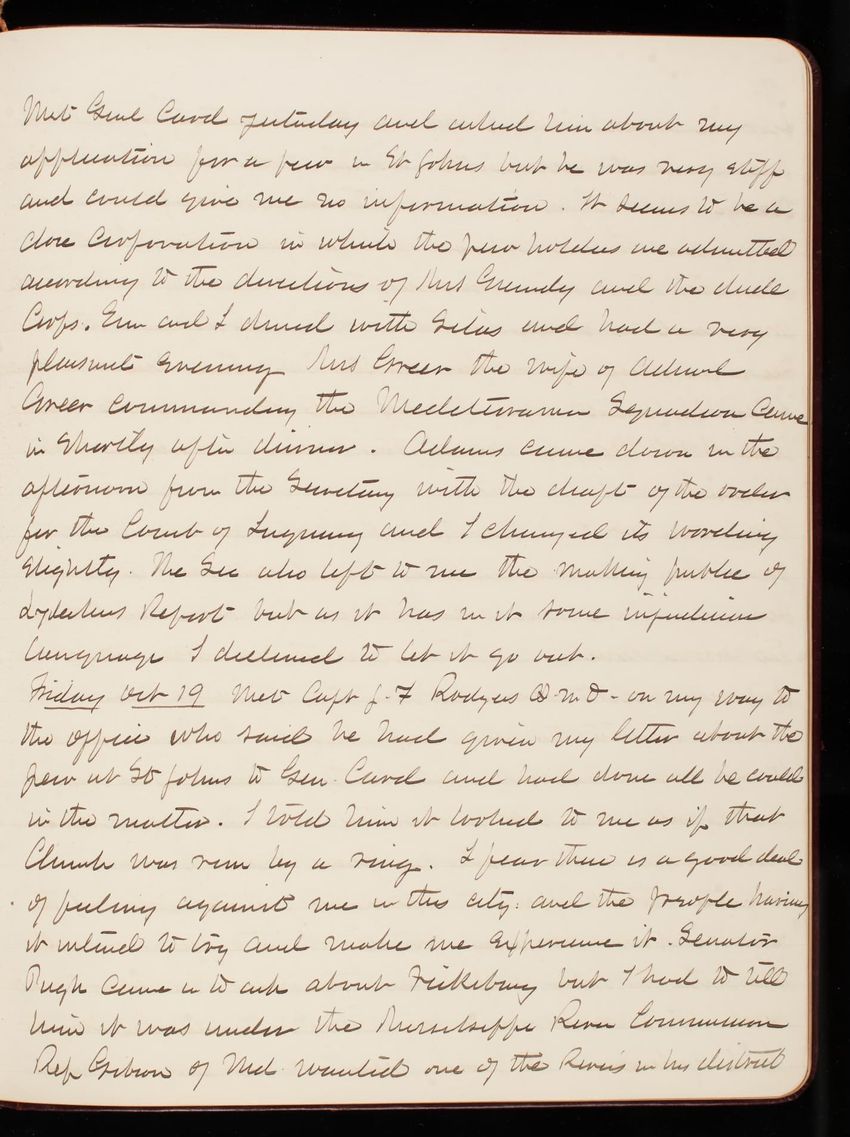 Met Genl Card yesterday and asked him about my
application for a pew in St Johns but he was very stiff
and could give me no information. It seems to be a
close corporation in which the pew holders are admitted
according to the directions of Mrs Grundy and the dude
Corps. Em and I dined with Silas and had a very
pleasant evening Mrs Greer the wife of Admrl
Greer commanding the Mediterranean Squadron came
in shortly after dinner. Adams came down in the
afternoon from the Secretary with the draft of the order
for the Court of Inquiry and I changed its wording
slightly. The Sec also left to me the making public of
Lydeckers Report but as it has in it some injudicious
language I declined to let it go out.
Friday Oct 19 Met Capt J. F Rodgers Q.M.D - on my way to
the office who said he had given my letter about the
pew at St Johns to Gen. Card and had done all he could
in the matter. I told him it looked to me as if that
Church was run by a ring. I fear there is a good deal
of feeling against me in this city. and the people having
it intend to try and make me experience it. Senator
Pugh came in to ask about Vicksburg but I had to tell
him it was under the Mississippi River Commission
Rep Gibson of Md. wanted one of the Rivers in his district